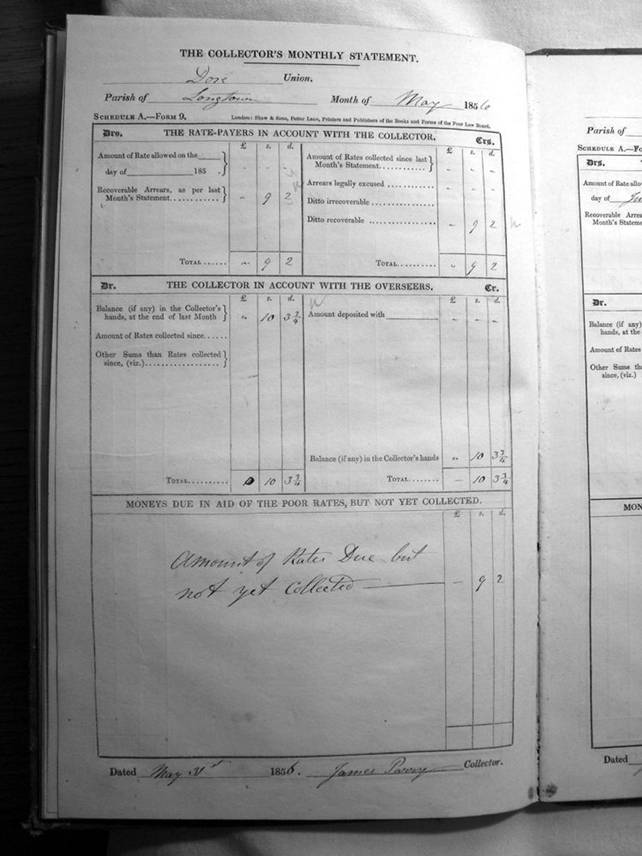 THE COLLECTOR'S MONTHLY STATEMENT.
Dore Union.
Parish of Longtown Month of May 1856
SCHEDULE A.—FORM 9. London: Shaw & Sons, Fetter Lane, Printers and Publishers of the Books and Forms of the Poor Law Board.
Drs. THE RATE-PAYERS IN ACCOUNT WITH THE COLLECTOR. Crs.
£ s. d. £ s. d.
Amount of Rate allowed on the
day of 185 - - -
Recoverable Arrears, as per last
Month's Statement - 9 2
TOTAL - 9 2
Amount of Rates collected since last
Month's Statement - - -
Arrears legally excused - - -
Ditto irrecoverable - - -
Ditto recoverable - 9 2
TOTAL - 9 2
Dr. THE COLLECTOR IN ACCOUNT WITH THE OVERSEERS. Cr.
£ s. d. £ s. d.
Balance (if any) in the Collector's
hands, at the end of last Month " 10 3¾
Amount of Rates collected since
Other Sums than Rates collected
since, (viz.)
TOTAL 0 10 3¾
Amount deposited with - - -
Balance (if any) in the Collector's hands " 10 3¾
TOTAL - 10 3¾
MONEYS DUE IN AID OF THE POOR RATES, BUT NOT YET COLLECTED.
£ s. d.
Amount of Rates Due but
not yet Collected - 9 2
Dated May 31st 1856. James Parry Collector.
Parish of
SCHEDULE A.—FORM 9
Drs.
Amount of Rate
day of
Recoverable Arrears
Month's Statement
Dr.
Balance (if any)
hands, at the
Amount of Rates
Other Sums
since, (viz.)
MON
Dated